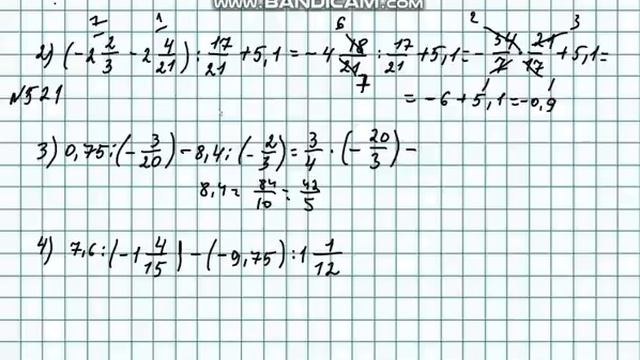 WWW.BANDICAM.COM
2) (-2 2/3 - 2 4/21) : 17/21 + 5,1 = -4 18/21 : 17/21 + 5,1 = - 34/7 · 21/17 + 5,1 =
№521 = -6 + 5,1 = -0,9
3) 0,75 : (- 3/20) - 8,4 : (- 2/3) = 3/4 · (- 20/3) -
8,4 = 84/10 = 42/5
4) 7,6 : (-1 4/15) - (-9,75) : 1 1/12